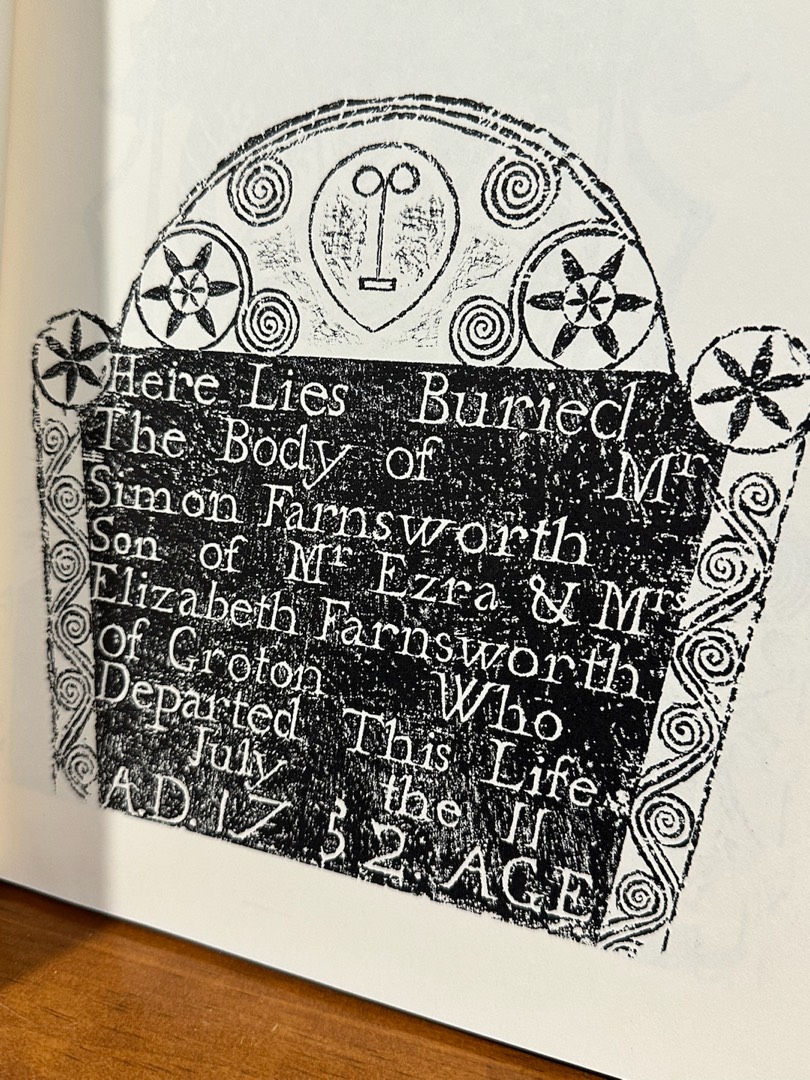 Here Lies Buried
The Body of Mr
Simon Farnsworth
Son of Mr Ezra & Mrs
Elizabeth Farnsworth
of Groton Who
Departed This Life
July the 11
A.D. 1752. AGE